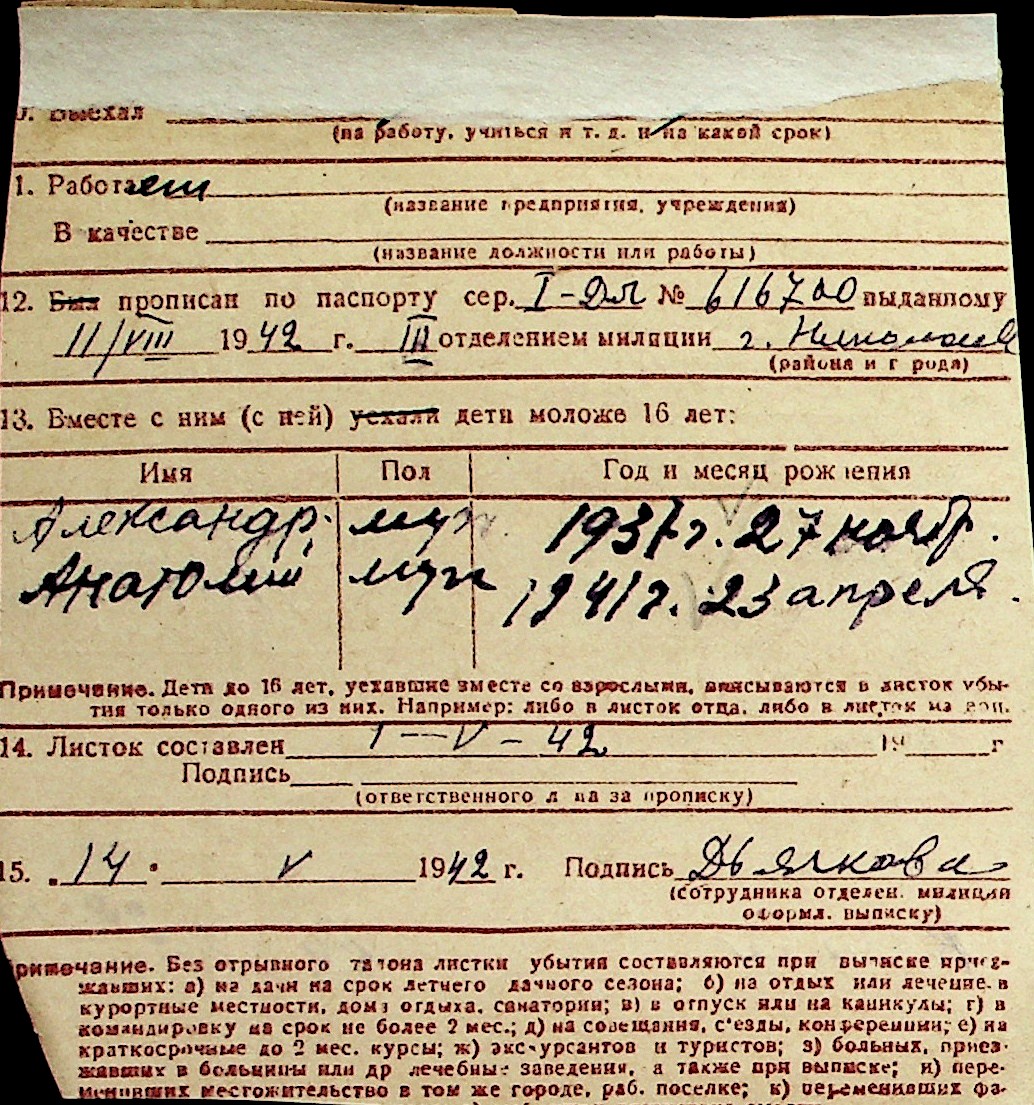 0. Выехал
(на работу, учиться и т. д. и на какой срок)
1. Работает
(название предприятия, учреждения)
В качестве
(название должности или работы)
12. Был прописан по паспорту сер. I-ДЛ № 616700 выданному
11/VIII 1942 г. III отделением милиции г. Николаев
(района и города)
13. Вместе с ним (с ней) уехали дети моложе 16 лет:
Имя Пол Год и месяц рождения
Александр. муж 1937 г. 27 ноябр.
Анатолий муж 1941 г. 23 апреля.
Примечание. Дети до 16 лет, уехавшие вместе со взрослыми, вписываются в листок убы-
тия только одного из них. Например: либо в листок отца, либо в листок матери.
14. Листок составлен 1-V-42 19 г
Подпись
(ответственного лица за прописку)
15. 14. V 1942 г. Подпись Дьячкова
(сотрудника отделен. милиции
оформл. выписку)
римечание. Без отрывного талона листки убытия составляются при выписке приез-
жавших: а) на дачи на срок летнего дачного сезона; б) на отдых или лечение в
курортные местности, дома отдыха, санатории; в) в отпуск или на каникулы; г) в
командировку на срок не более 2 мес.; д) на совещания, с'езды, конференции; е) на
краткосрочные до 2 мес. курсы; ж) экскурсантов и туристов; з) больных, приез-
жавших в больницы или др лечебные заведения, а также при выписке; и) пере-
менивших местожительство в том же городе, раб. поселке; к) переменивших фа-